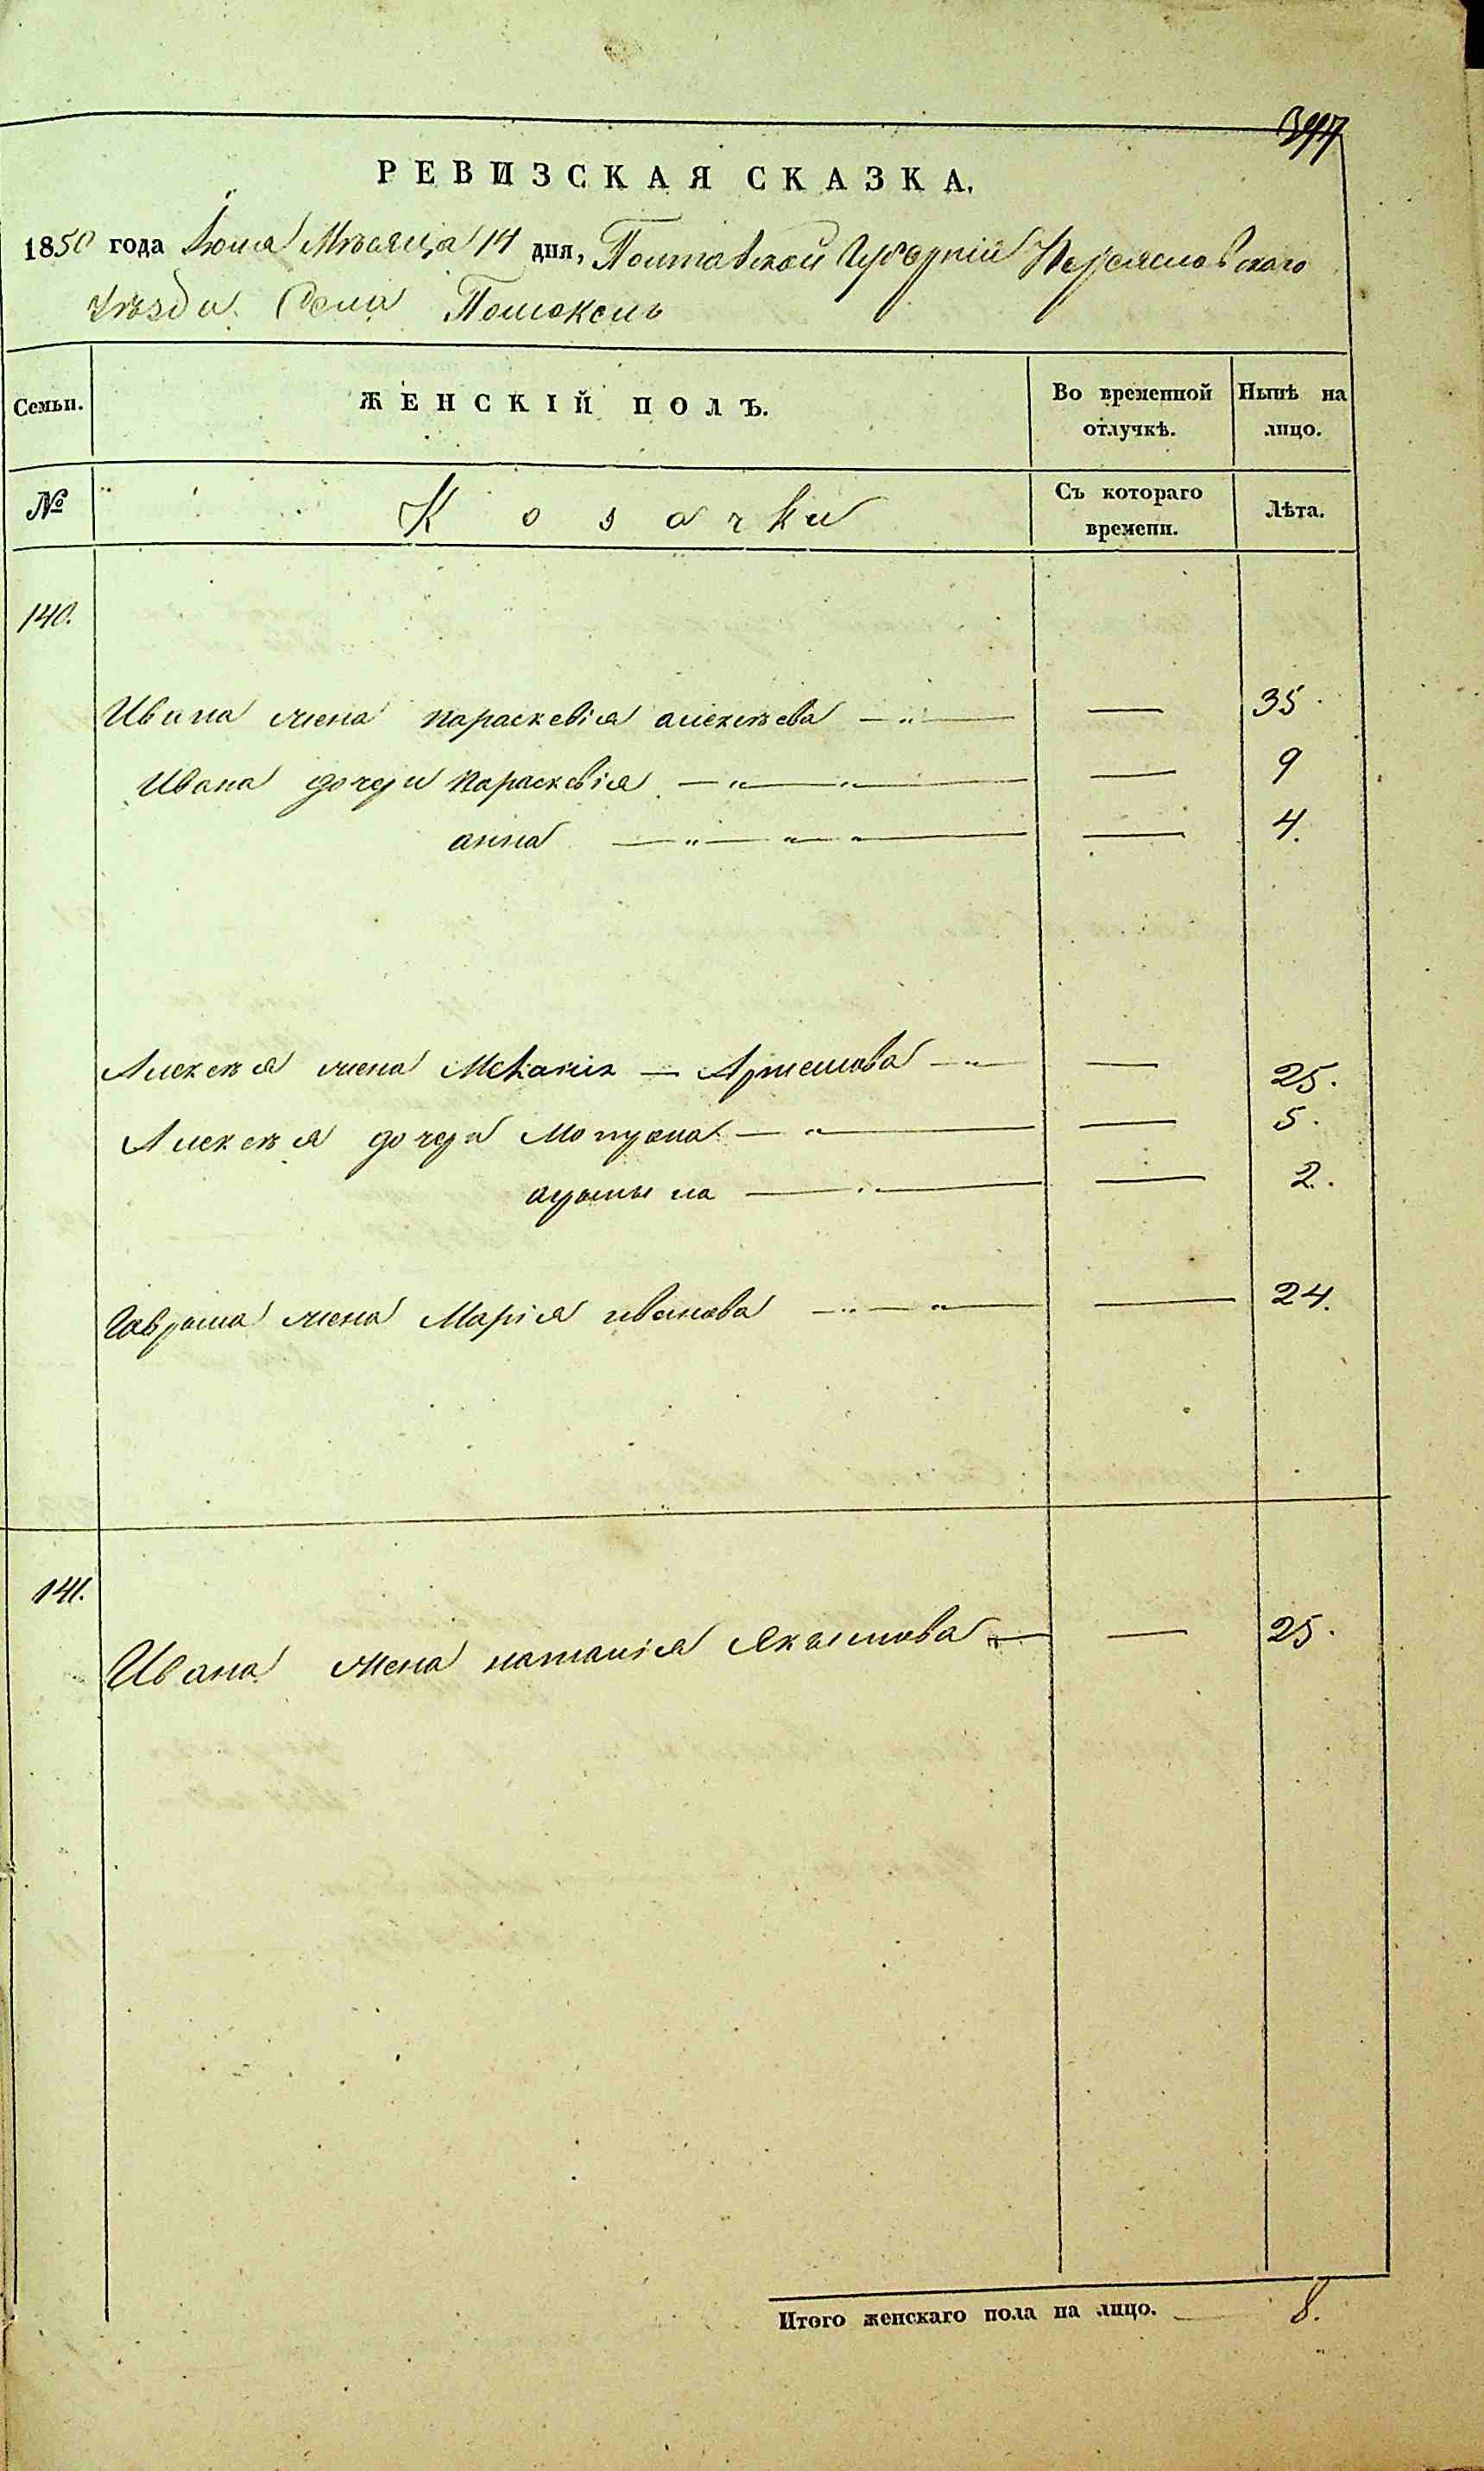 РЕВИЗСКАЯ СКАЗКА.
1850 года Іюля Мѣсяца 14 дня, Полтавской Губерніи Переясловского
уѣзда Села Помоклъ
Семьи.
ЖЕНСКІЙ ПОЛЪ.
Во временной отлучкѣ.
Нынѣ на лицо.
№
Козачки
Съ котораго времени.
Лѣта.
140.
Ивана жена параскевія алексѣева — 35.
Ивана дочери параскевія — 9
анна — 4.
Алексѣя жена Меланія — Артемова — 25.
Алексѣя дочери Мотрона — 5.
2.
Гаврила жена Марія иванова — 24.
141.
Ивана жена наталія Якимова — 25.
Итого женскаго пола на лицо. 8.